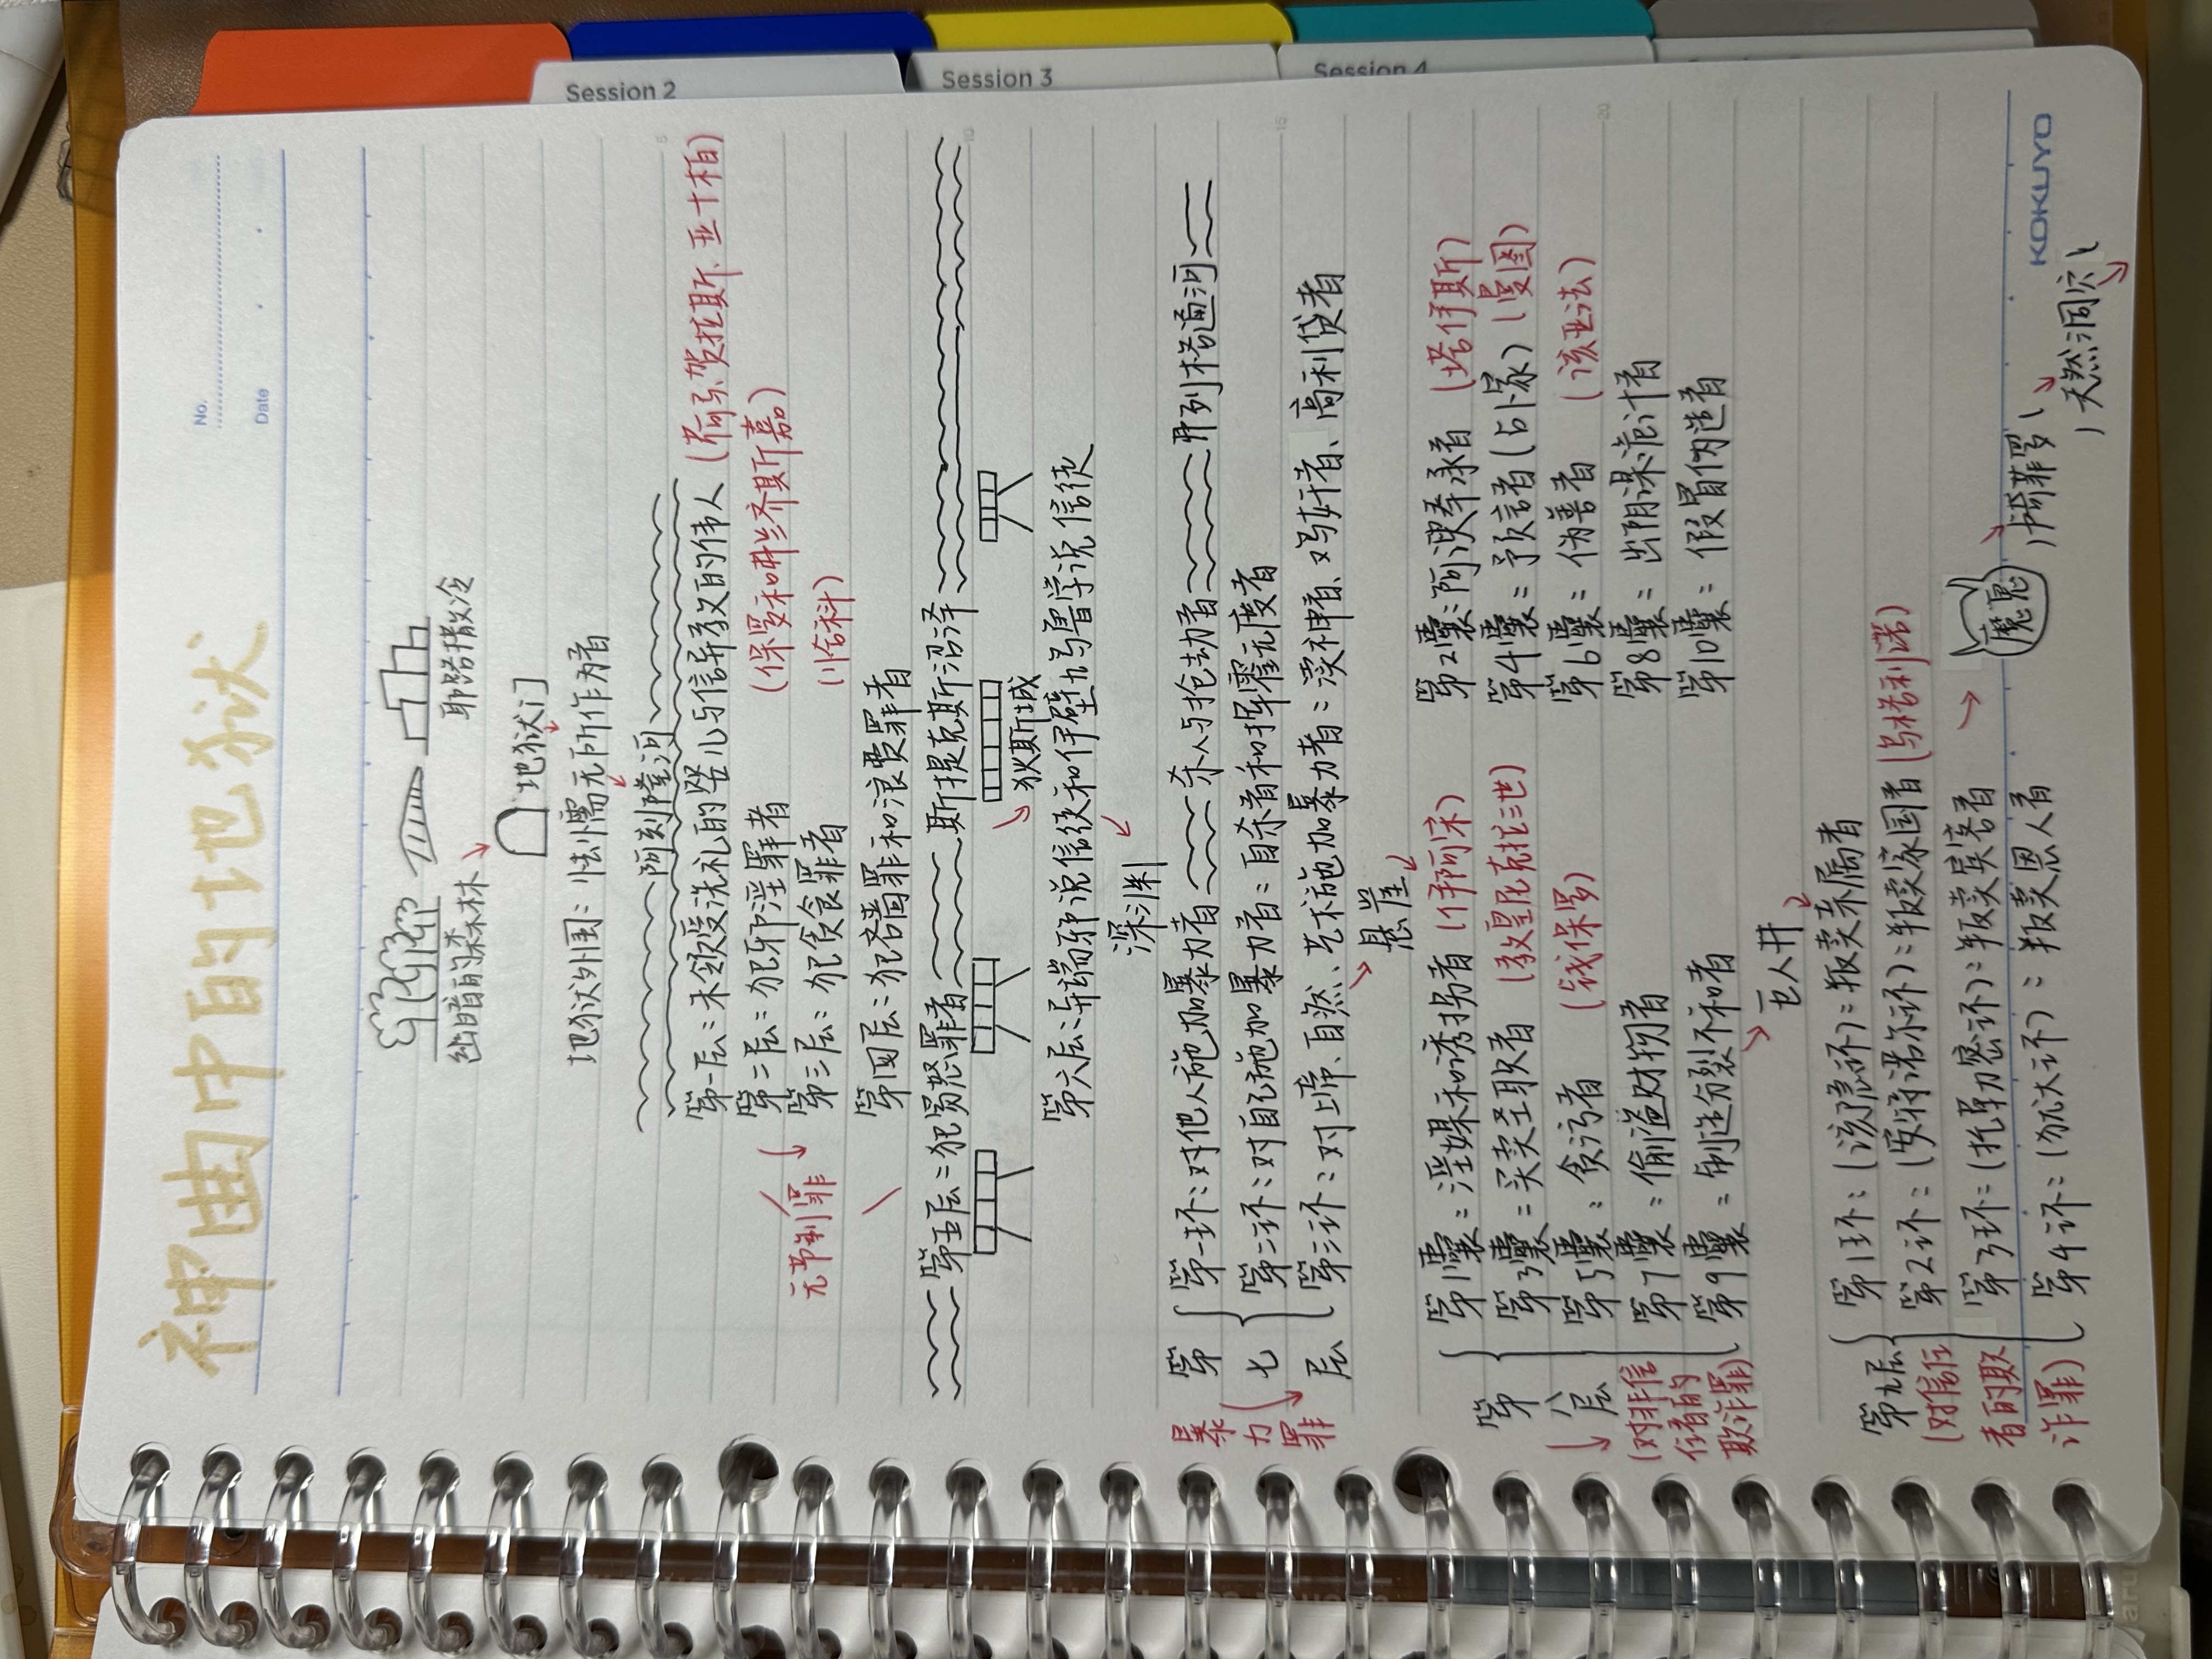 神曲中的地狱
No.
Date
幽暗的森林 耶路撒冷
地狱门
地狱外围：怯懦无所作为者
阿刻隆河
第一层：未领受洗礼的婴儿与信异教的伟人（荷马、贺拉斯、亚十柏）
第二层：犯邪淫罪者 （保罗和弗兰齐斯嘉）
无节制罪
第三层：犯贪食罪者 （恰科）
第四层：犯吝啬罪和浪费罪者
第五层：犯易怒罪者 斯提克斯沼泽
狄斯城
第六层：异端邪说信徒和伊壁鸠鲁学说信徒
深渊
暴力罪
第七层
第一环：对他人施加暴力者 杀人与抢劫者 弗列格通河
第二环：对自己施加暴力者：自杀者和挥霍无度者
第三环：对上帝、自然、艺术施加暴力者：渎神者、鸡奸者、高利贷者
悬崖
第八层
（对非信任者的欺诈罪）
第1囊：淫媒和诱拐者（伊阿宋） 第2囊：阿谀奉承者（塔伊斯）
第3囊：买卖圣职者（教皇尼克拉三世） 第4囊：预言者（占卜家）（曼图）
第5囊：贪污者 （钱保罗） 第6囊：伪善者 （该亚法）
第7囊：偷盗财物者 第8囊：出阴谋诡计者
第9囊：制造分裂不和者 第10囊：假冒伪造者
巨人井
第九层
（对信任者的欺诈罪）
第1环：（该隐环）：叛卖亲属者
第2环：（安特诺尔环）：叛卖家国者（乌格利诺）
第3环：（托勒密环）：叛卖宾客者
第4环：（犹大环）：叛卖恩人者
魔鬼
卢奇菲罗
天然洞穴
KOKUYO
Session 2
Session 3
Session 4
5
10
15
20